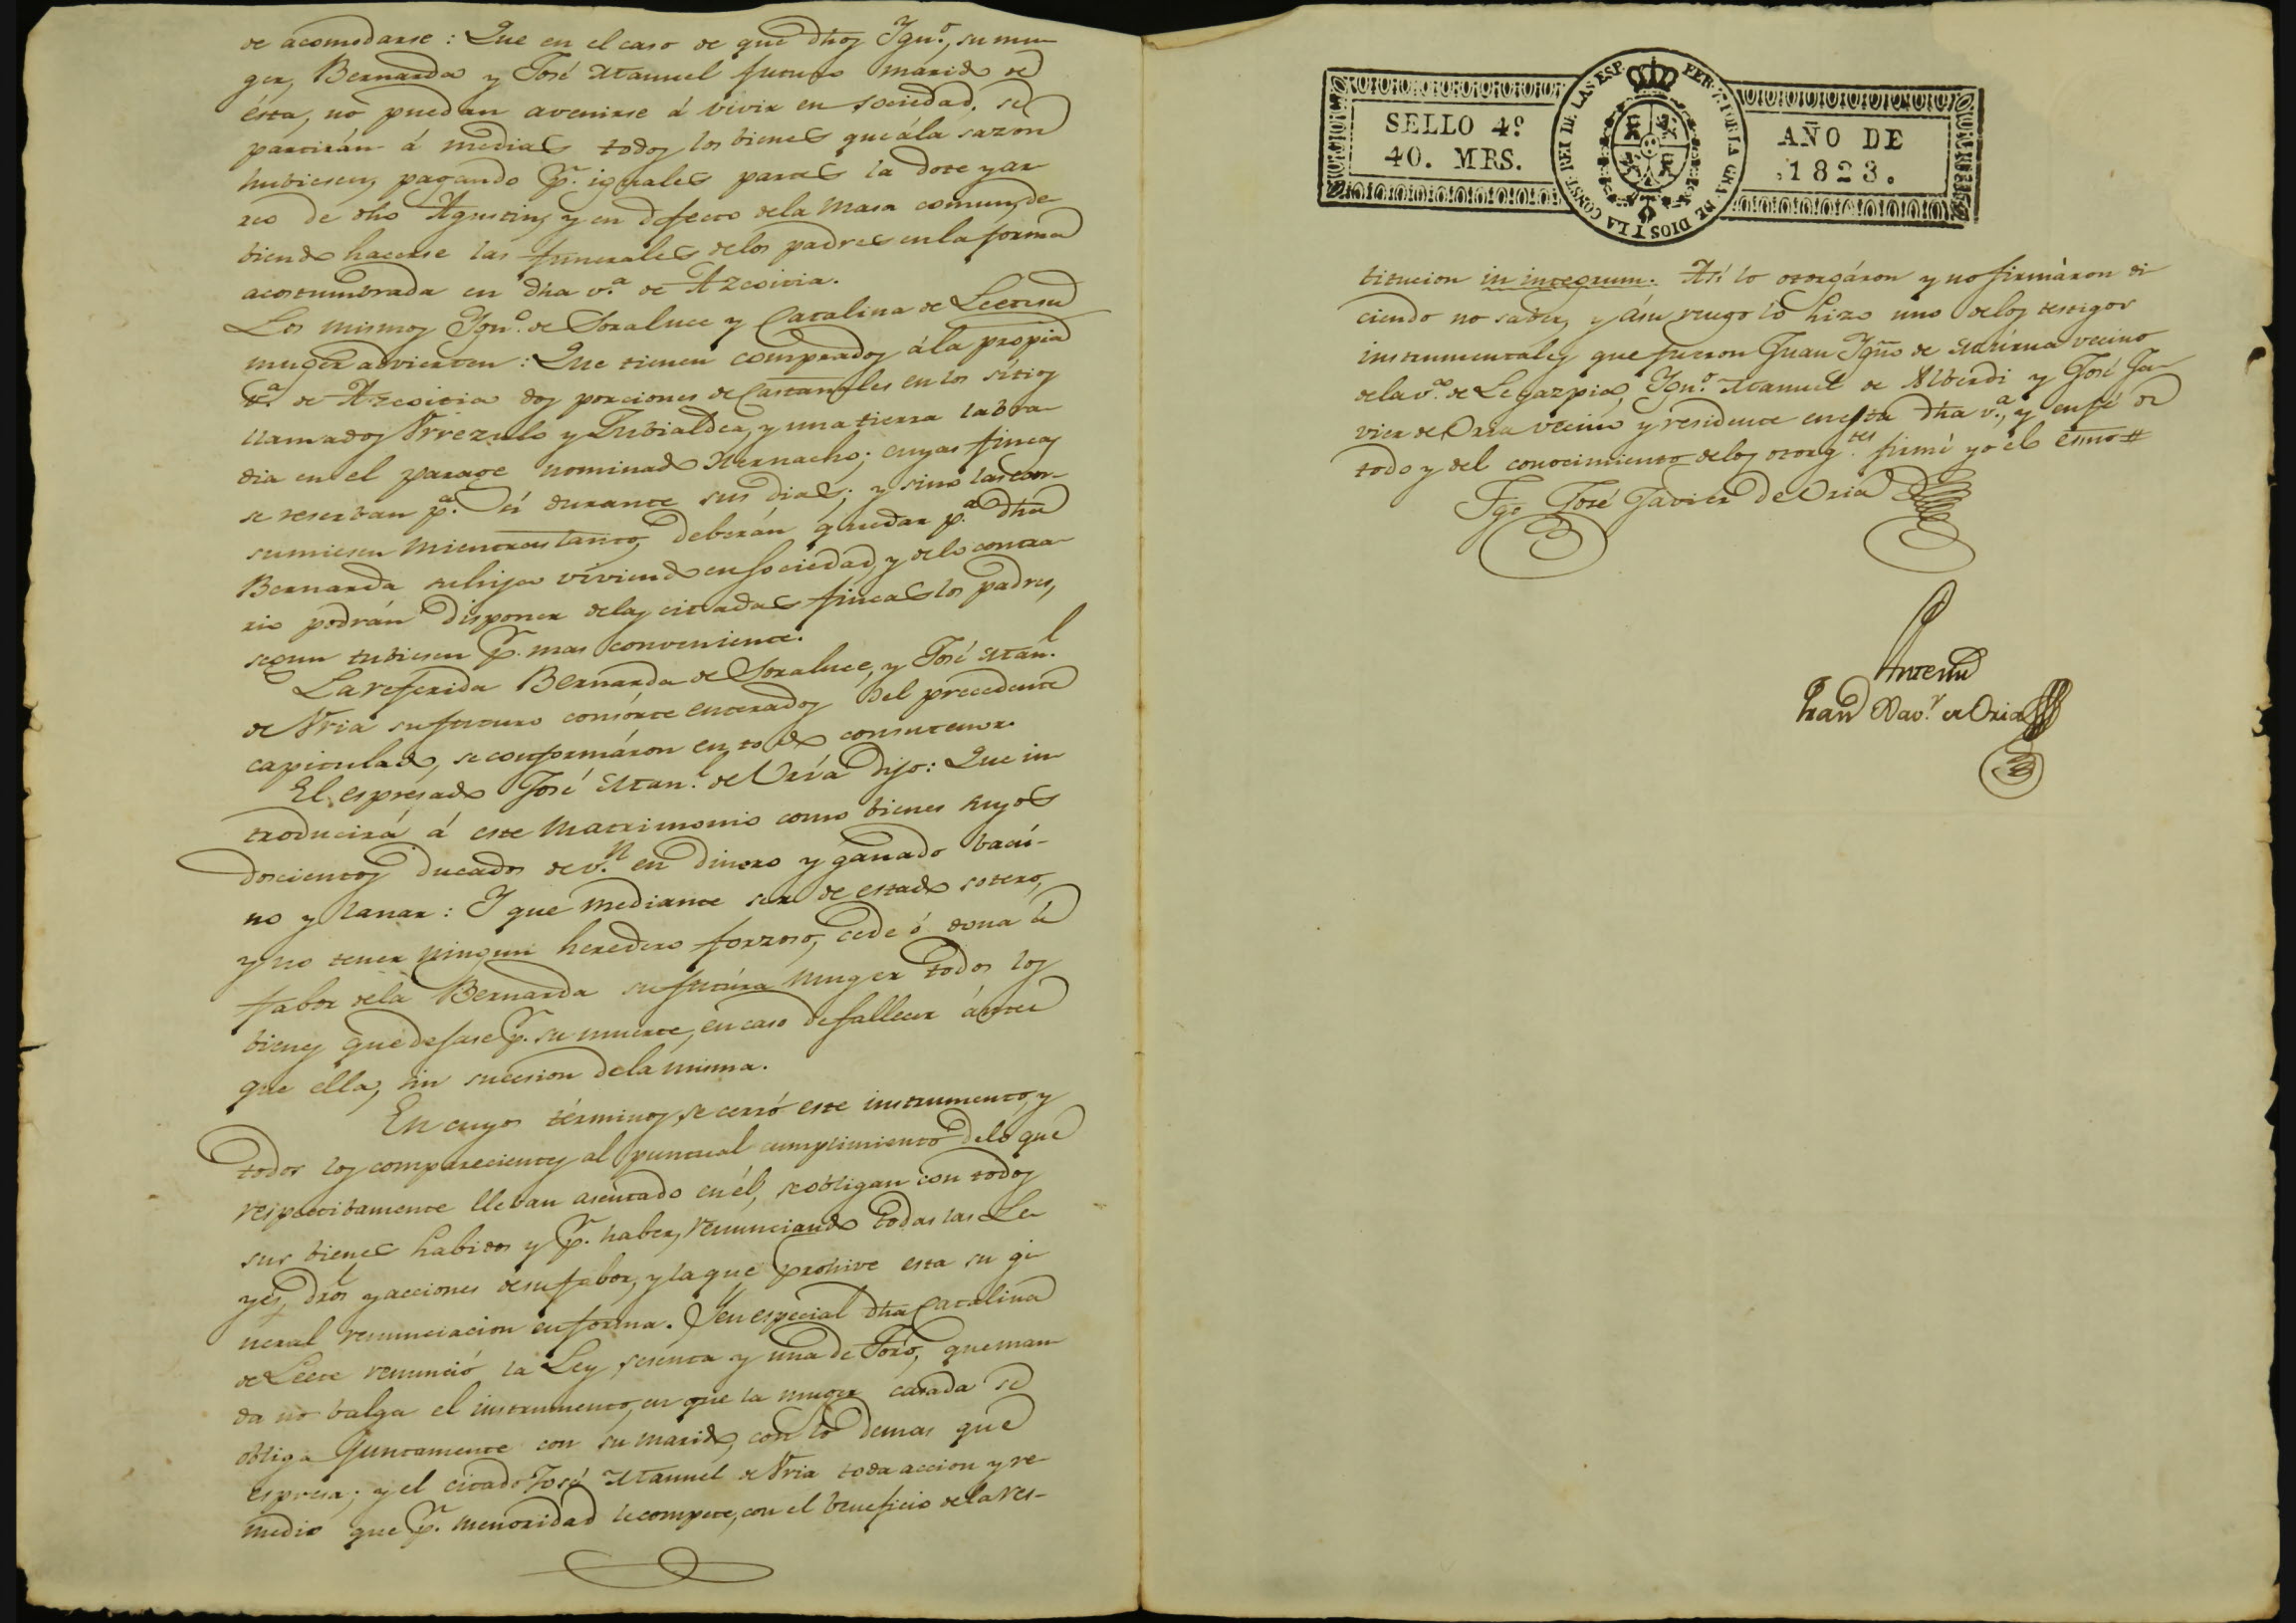 de acomodarse: Que en el caso de que dhos Ygn.º, su mu-
ger, Bernarda y José Manuel futuro marido de
ésta, no puedan avenirse á vivir en sociedad, se
partirán á medias todos los bienes que á la sazon
hubiesen, pagando p.r iguales partes la dote y ar-
reo de dho Agustin, y en defecto de la masa comun, de-
biendo hacerse las funerales de los padres en la forma
acostumbrada en dha v.a de Azcoitia.
Los mismos Ygn.º de Soraluce y Catalina de Leete su
muger advierten: Que tienen comprados á la propia
v.a de Azcoitia dos porciones de Castañales en los sitios
llamados Urrezulo y Tubialdea, y una tierra labra-
dia en el parage nominado Hernacho; cuyas fincas
se reserban p.a sí durante sus dias; y sino las con-
sumiesen mientras tanto, deberán quedar p.a dha
Bernarda su hija viviendo en sociedad, y de lo contra-
rio podrán disponer de las citadas fincas los padres,
segun tubiesen p.r mas conveniente.
La referida Bernarda de Soraluce, y José Man.l
de Uria su futuro consorte enterados del precedente
capitulado, se conformáron en todo con su tenor.
El espresado José Man.l de Uría dijo: Que in-
troducirá á este matrimonio como bienes suyos
doscientos ducados de v.n en dinero y ganado bacú-
no y lanar: Y que mediante ser de estado sotero,
y no tener ningun heredero forzoso, cede ó dona á
fabor de la Bernarda su futúra muger todos los
bienes que dejase p.r su muerte, en caso de fallecer ántes
que ella, sin sucesion de la misma.
En cuyos términos se cerró este instrumento, y
todos los comparecientes al puntual cumplimiento de lo que
respectibamente lleban asentado en él, se obligan con todos
sus bienes habidos y p.r haber, renunciando todas las Le-
yes, dros y acciones de su fabor, y la que prohive esta su ge-
neral renunciacion en forma. Y en especial dha Catalina
de Leete renunció la Ley sesenta y una de Toro, que man-
da no balga el instrumento, en que la muger casada se
obliga juntamente con su marido, con lo demas que
espresa; y el citado José Manuel de Uria toda accion y re-
medio que p.r menoridad le compete, con el beneficio de la res-
SELLO 4º
40. MRS.
FER. 7º POR LA GRA. DE DIOS Y LA CONST. REI DE LAS ESP.
AÑO DE
1823.
titucion in integrum. Así lo otorgáron y no firmáron di-
ciendo no saber, y á su ruego lo hizo uno de los testigos
instrumentales que fueron Juan Ygn.º de Múrua vecino
de la v.a de Legazpia, Ygn.º Manuel de Alberdi y José Ja-
vier de Oria vecino y residente en esta dha v.a, y en fé de
todo y del conocimiento de los otorg.tes firmé yo el Esno #
Tgo José Javier de Oria
Antemi
Fran.co Xav.r de Oria